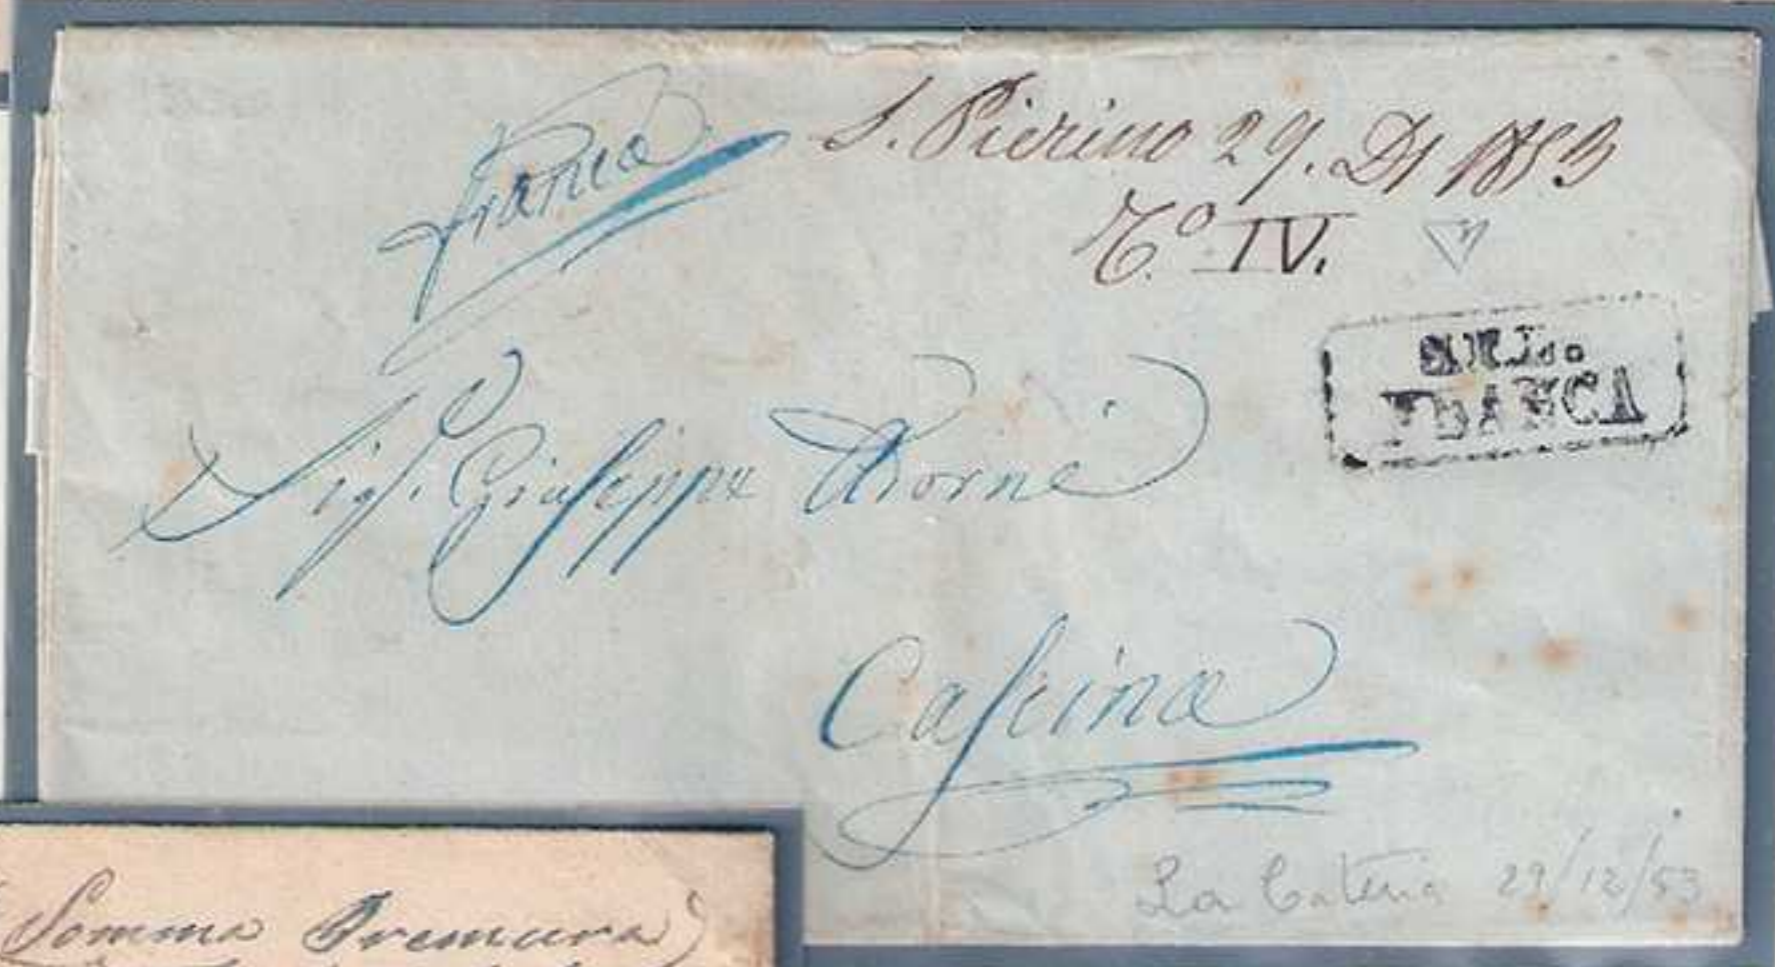 Franca
S. Pierino 29. D 1853
C.º IV.
FRANCA
Sig. Giuseppe
Cascina
La Catena 29/12/53
Somma Premura